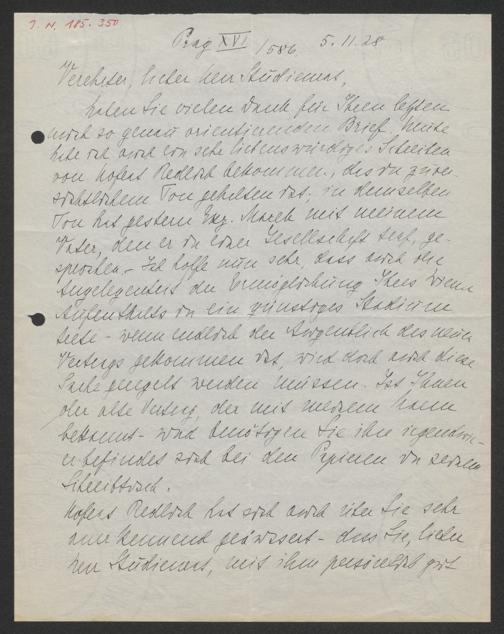 J. N. 185.350
Prag XVI /586. 5.11.28
Verehrter, lieber Herr Studienrat,
haben Sie vielen Dank für Ihren letzten
mich so genau orientierenden Brief. Heute
habe ich auch ein sehr liebenswürdiges Schreiben
von Hofrat Redlich bekommen, das in zuver-
sichtlichem Ton gehalten ist. in demselben
Ton hat gestern Exz. March mit meinem
Vater, den er in einer Gesellschaft traf, ge-
sprochen. - Ich hoffe nun sehr, dass auch die
Angelegenheit der Ermöglichung Ihres Wiener
Aufenthalts in ein günstiges Stadium
trete - wenn endlich der Augenblick des neuen
Vertrags gekommen ist, wird doch auch diese
Sache geregelt werden müssen. Ist Ihnen
der alte Vertrag, der mit meinem Mann
bekannt - und benötigen Sie ihn irgendwie -
er befindet sich bei den Papieren in seinem
Schreibtisch.
Hofrat Redlich hat sich auch über Sie sehr
anerkennend geäussert - dass Sie, lieber
Herr Studienrat, mit ihm persönlich gut